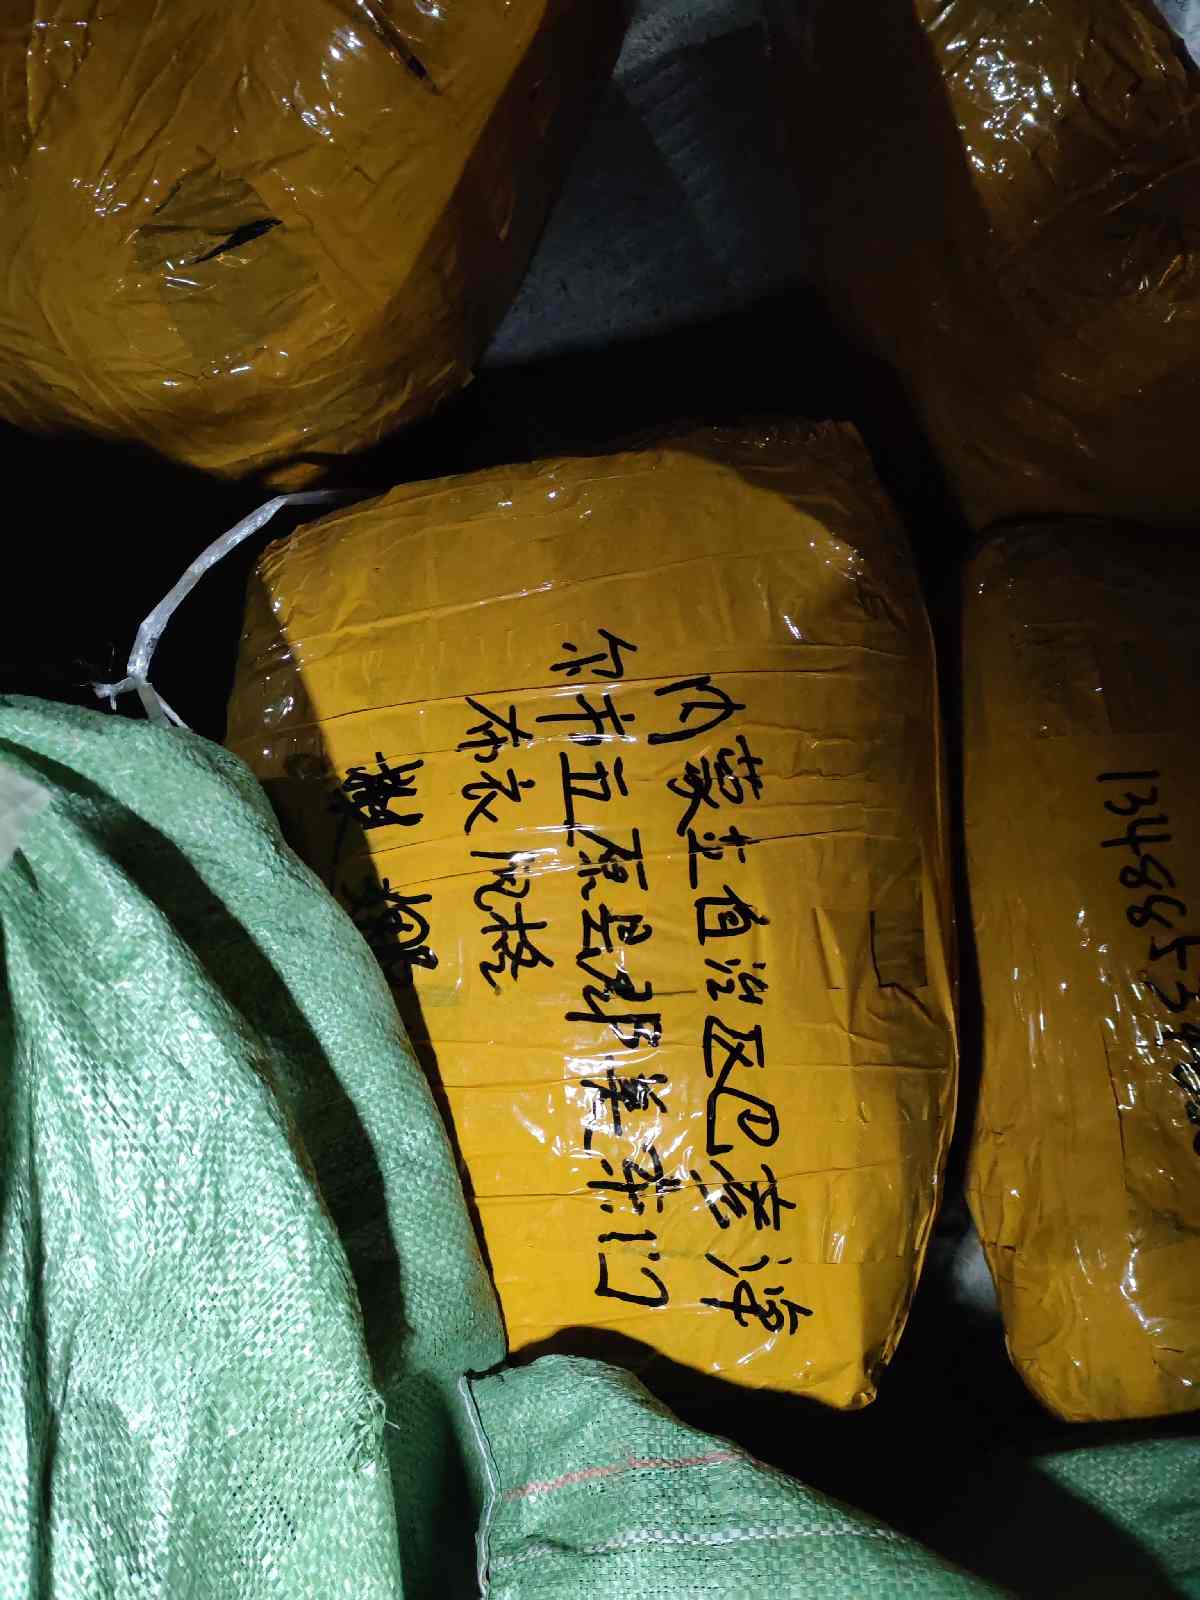 内蒙古自治区巴彦淖
尔市五原县东门
布衣风格
1348853